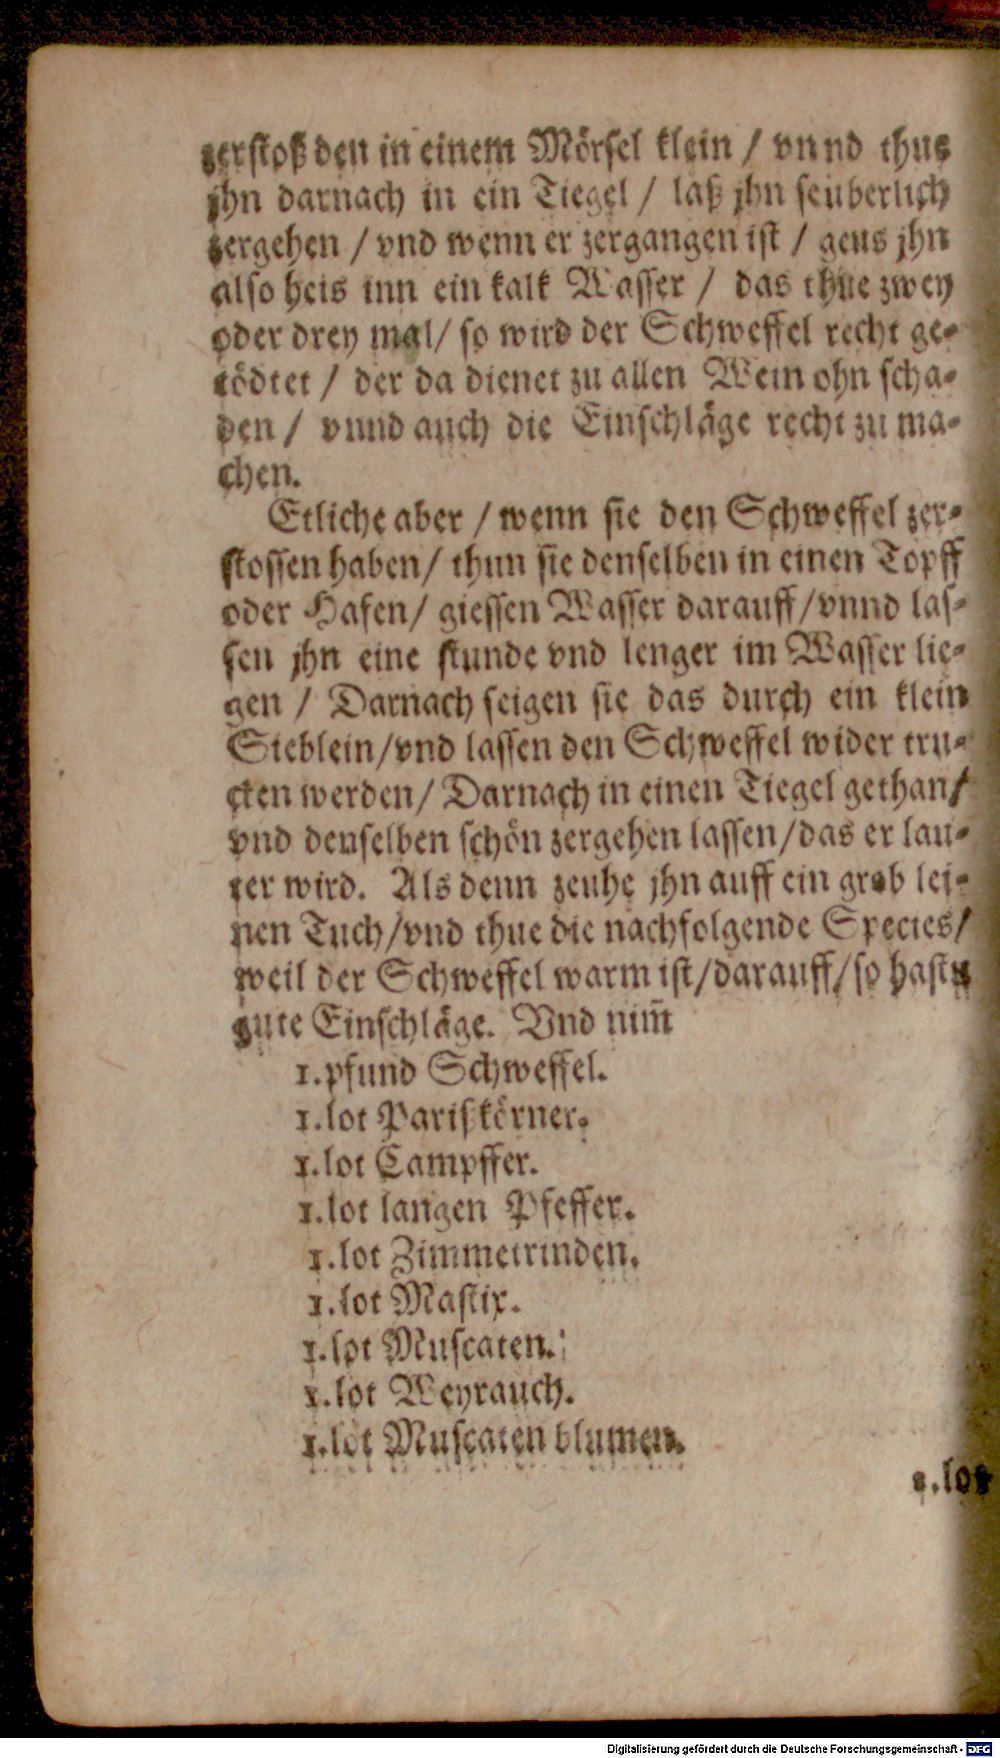 zerstoß den in einem Mörsel klein / vnnd thue
jhn darnach in ein Tiegel / laß jhn seuberlich
zergehen / vnd wenn er zergangen ist / geus jhn
also heis inn ein kalt Wasser / das thue zwey
oder drey mal / so wird der Schweffel recht ge-
tödtet / der da dienet zu allen Wein ohn scha-
den / vnnd auch die Einschläge recht zu ma-
chen.
Etliche aber / wenn sie den Schweffel zer-
stossen haben / thun sie denselben in einen Topff
oder Hafen / giessen Wasser darauff / vnnd las-
sen jhn eine stunde vnd lenger im Wasser lie-
gen / Darnach seigen sie das durch ein klein
Sieblein / vnd lassen den Schweffel wider tru-
cken werden / Darnach in einen Tiegel gethan /
vnd denselben schön zergehen lassen / das er lau-
ter wird. Als denn zeuhe jhn auff ein grob lei-
nen Tuch / vnd thue die nachfolgende Species /
weil der Schweffel warm ist / darauff / so hastu
gute Einschläge. Vnd nim̃
1. pfund Schweffel.
1. lot Pariskörner.
1. lot Campffer.
1. lot langen Pfeffer.
1. lot Zimmetrinden.
1. lot Mastix.
1. lot Muscaten.
1. lot Weyrauch.
1. lot Muscaten blumen.
1. lot
Digitalisierung gefördert durch die Deutsche Forschungsgemeinschaft - DFG